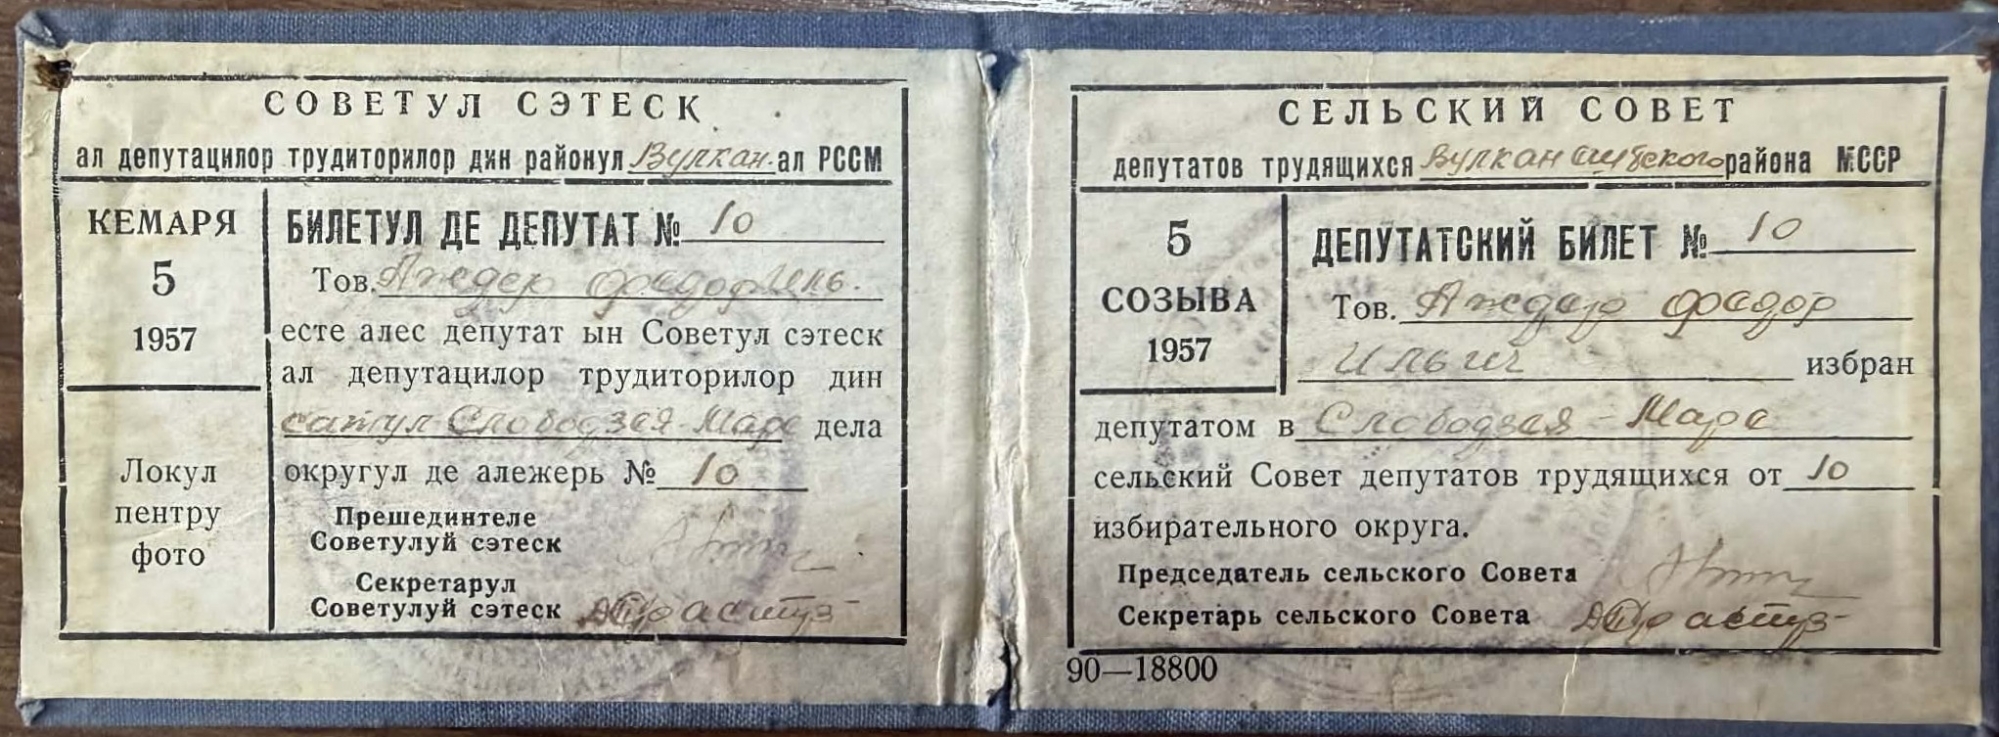 СОВЕТУЛ СЭТЕСК
ал депутацилор трудиторилор дин районул Вулкан. ал РССМ
КЕМАРЯ
5
1957
Локул
пентру
фото
БИЛЕТУЛ ДЕ ДЕПУТАТ № 10
Тов. Аждер Федор Иль.
есте алес депутат ын Советул сэтеск
ал депутацилор трудиторилор дин
сатул Слободзея-Маре дела
округул де алежерь № 10
Прешединтеле
Советулуй сэтеск
Секретарул
Советулуй сэтеск
СЕЛЬСКИЙ СОВЕТ
депутатов трудящихся Вулканештского района МССР
5
СОЗЫВА
1957
ДЕПУТАТСКИЙ БИЛЕТ № 10
Тов. Аждер Федор
Ильич избран
депутатом в Слободзея-Маре
сельский Совет депутатов трудящихся от 10
избирательного округа.
Председатель сельского Совета
Секретарь сельского Совета
90—18800